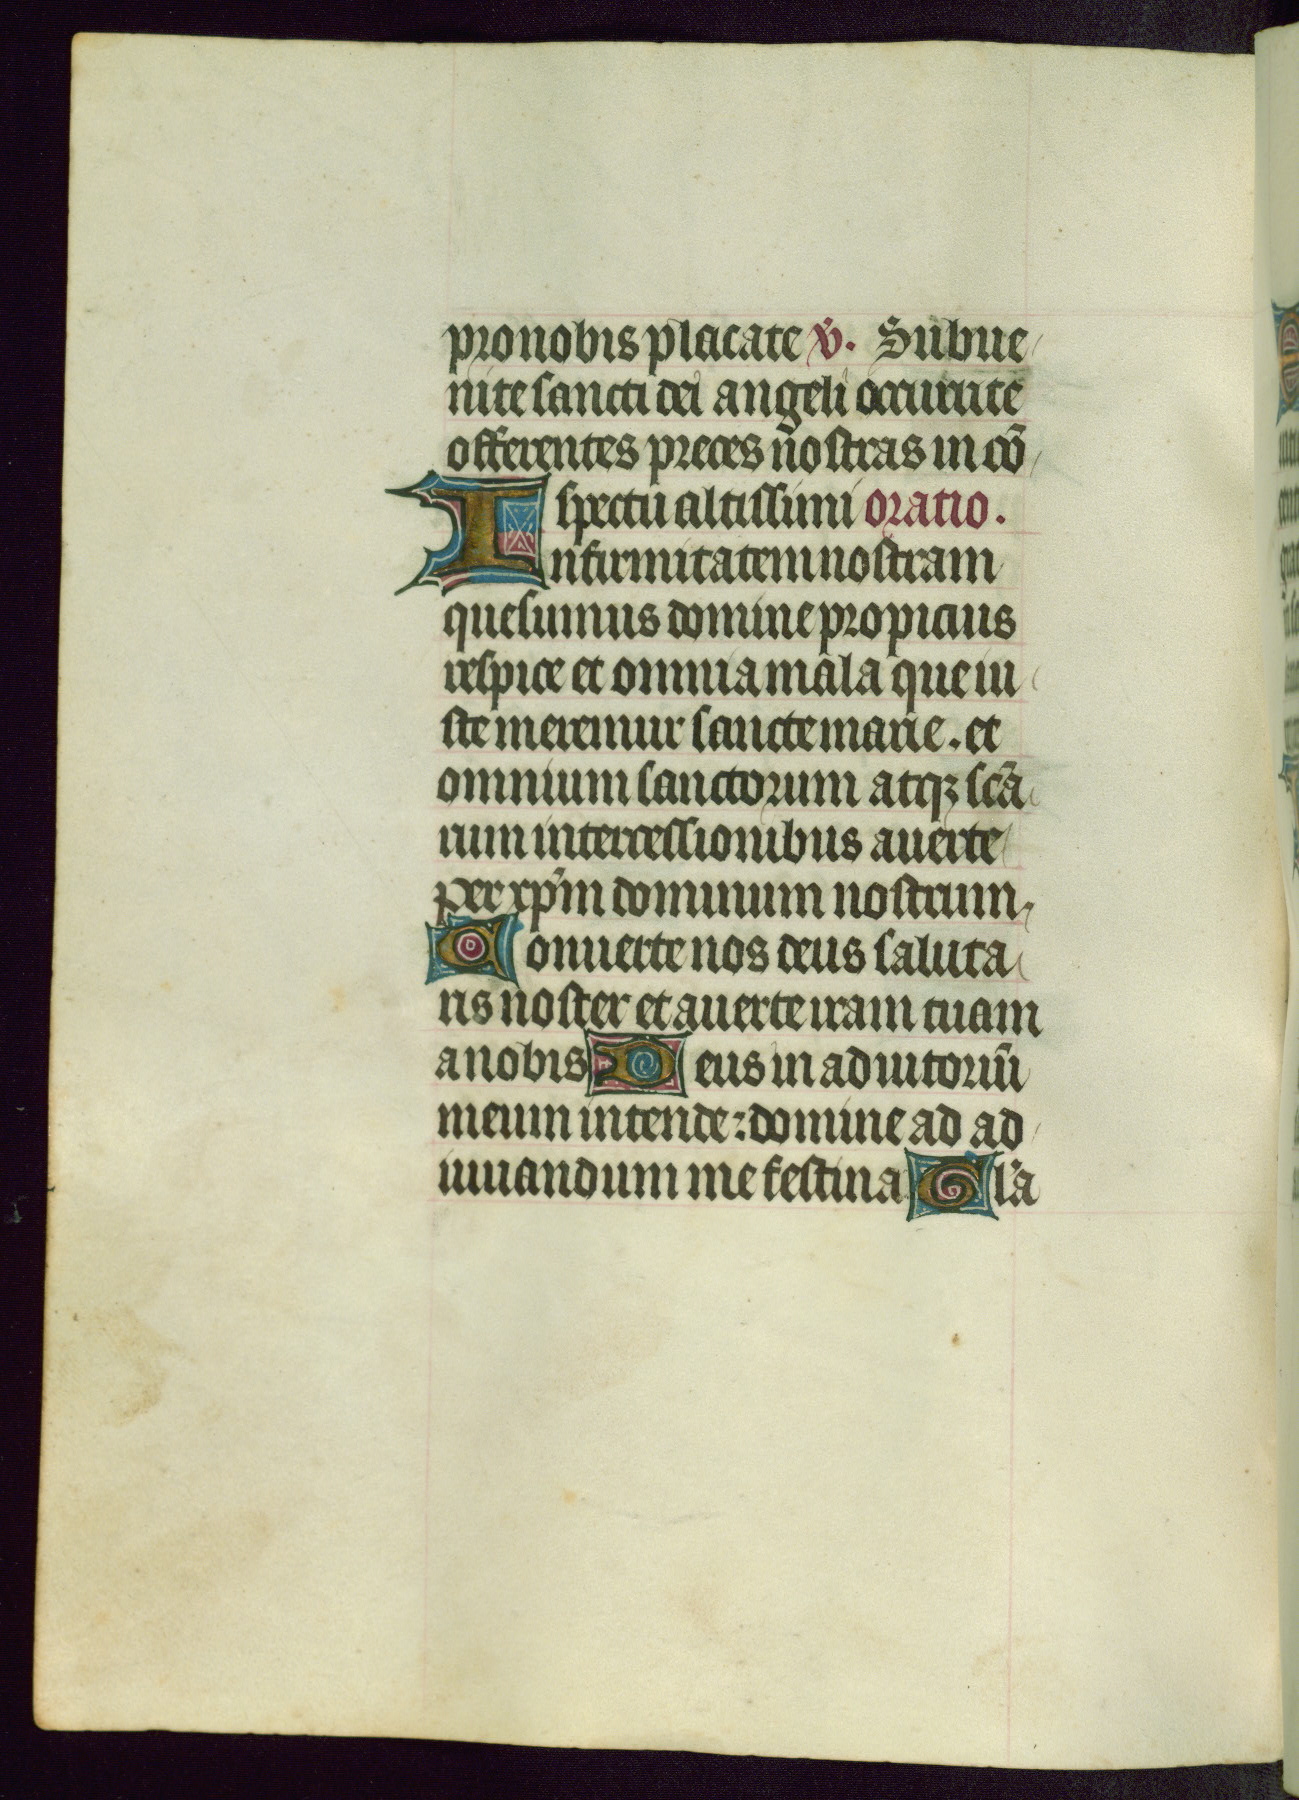 pro nobis placate v̄. Subue
nite sancti dei angeli occurrite
offerentes preces nostras in cō
spectu altissimi oratio.
Infirmitatem nostram
quesumus domine propicius
respice et omnia mala que iu
ste meremur sancte marie. et
omnium sanctorum atqꝫ scā
rum intercessionibus auerte
per xp̄m dominum nostrum.
Conuerte nos deus saluta
ris noster et auerte iram tuam
a nobis Deus in adiutoriū
meum intende: domine ad ad
iuuandum me festina Glā